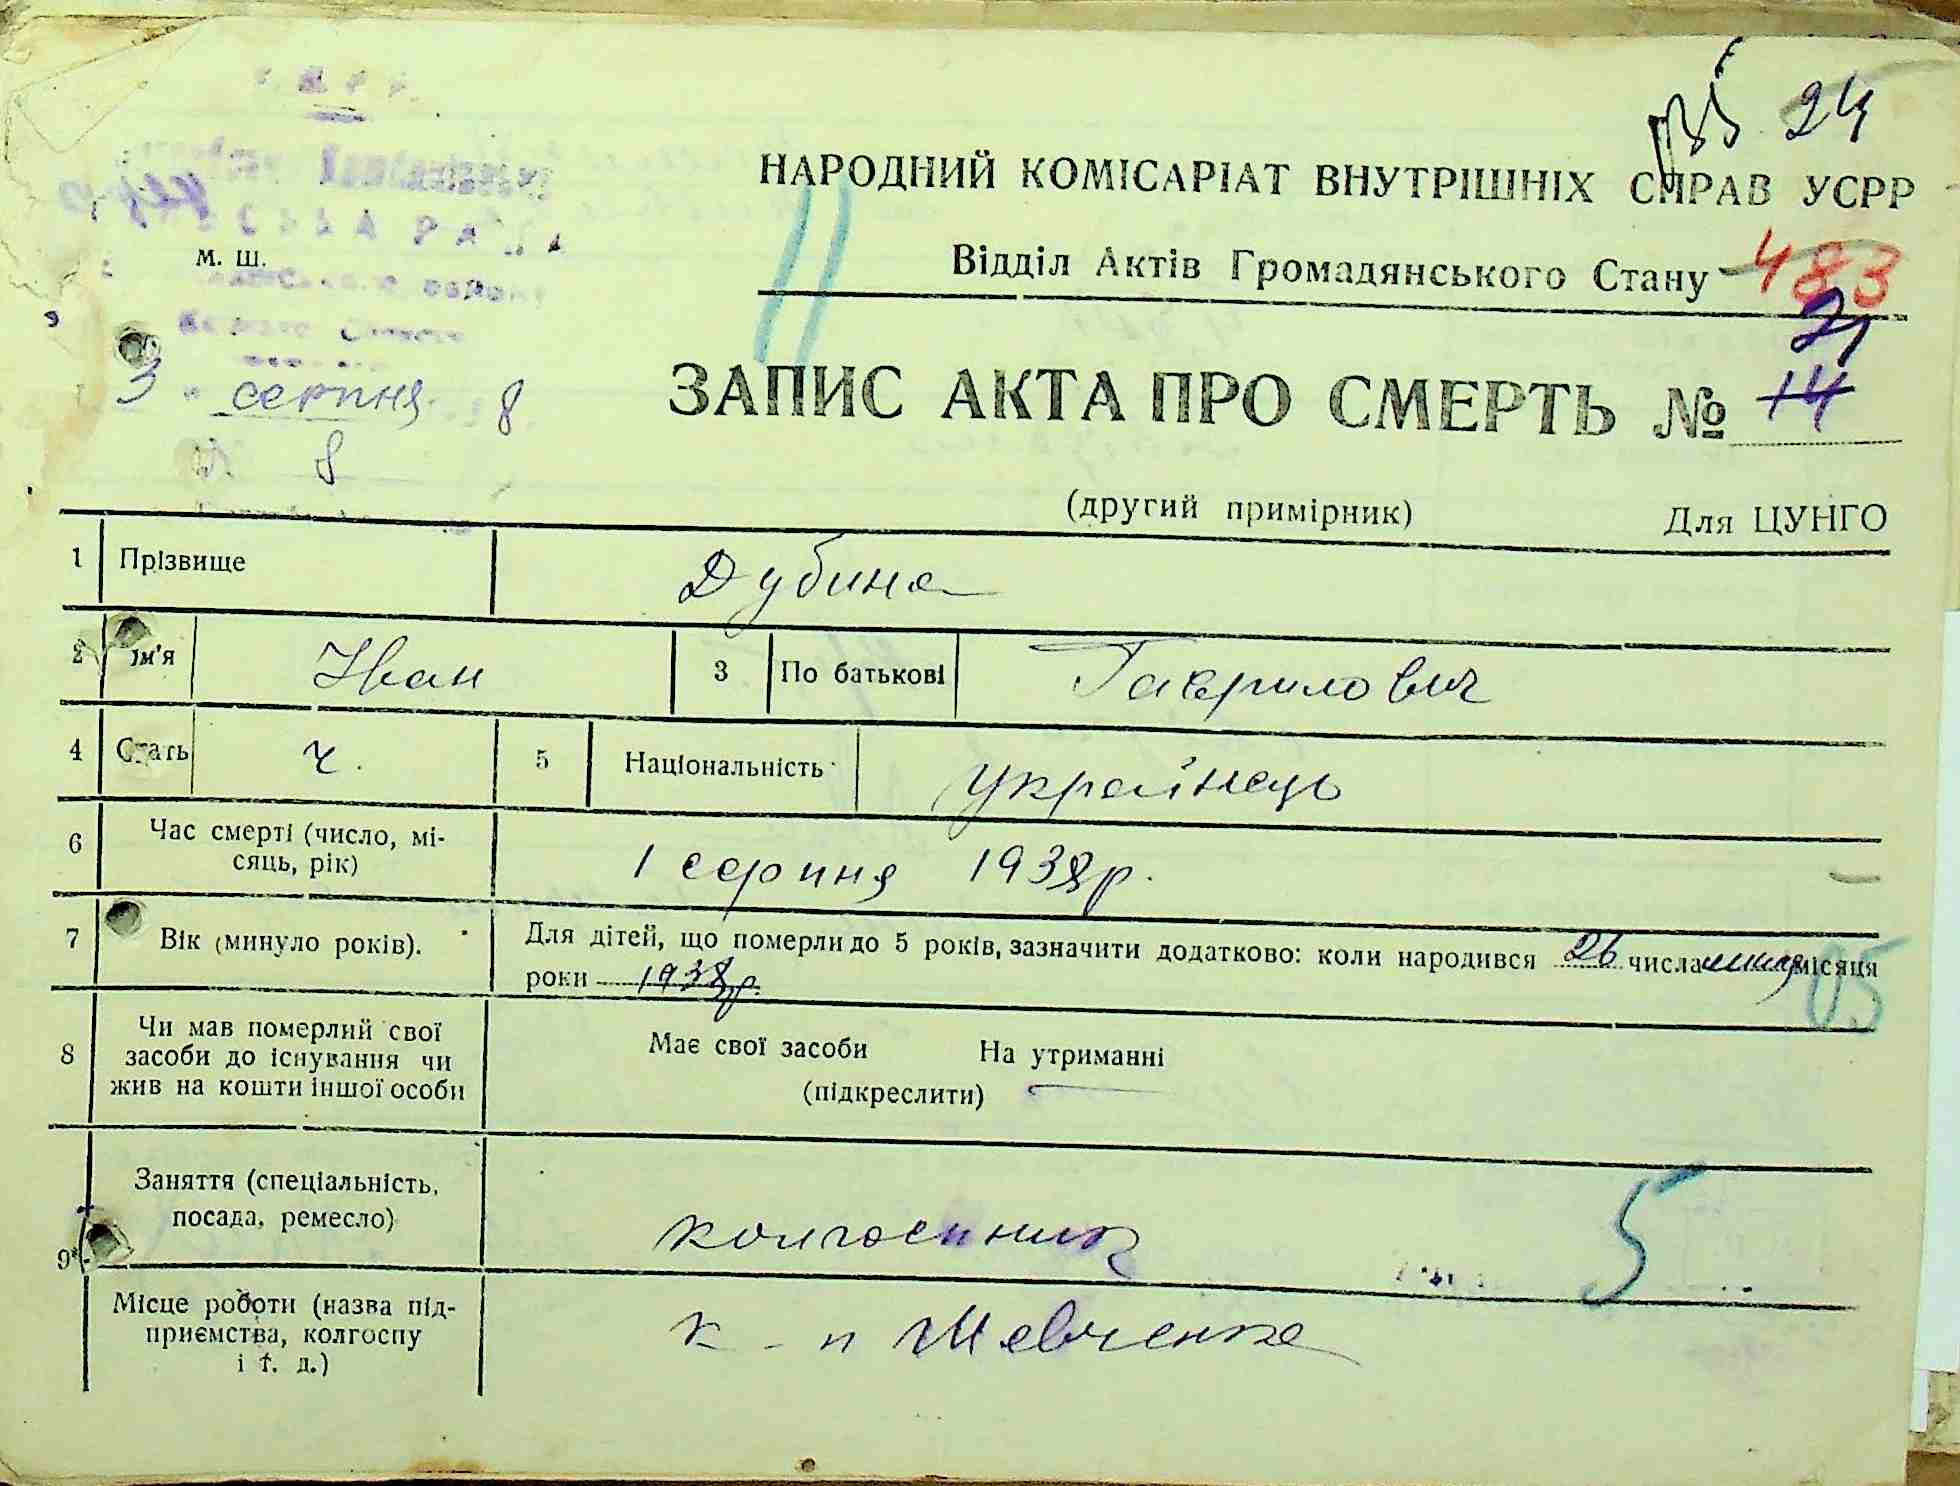 24
НАРОДНИЙ КОМІСАРІАТ ВНУТРІШНІХ СПРАВ УСРР
М. Ш.
Відділ Актів Громадянського Стану
483
21
3 серпня 8
ЗАПИС АКТА ПРО СМЕРТЬ № 14
8
(другий примірник) Для ЦУНГО
1 Прізвище Дубина
2 Ім'я Іван 3 По батькові Гаврилович
4 Стать ч. 5 Національність українець
6 Час смерті (число, мі-
сяць, рік) 1 серпня 1938 р.
7 Вік (минуло років). Для дітей, що померли до 5 років, зазначити додатково: коли народився 26 числа липня місяця
роки 1938 р. 05
8 Чи мав померлий свої
засоби до існування чи
жив на кошти іншої особи
Має свої засоби На утриманні
(підкреслити)
9 Заняття (спеціальність,
посада, ремесло) колгоспник 5
Місце роботи (назва під-
приємства, колгоспу
і т. д.) к-п Шевченка